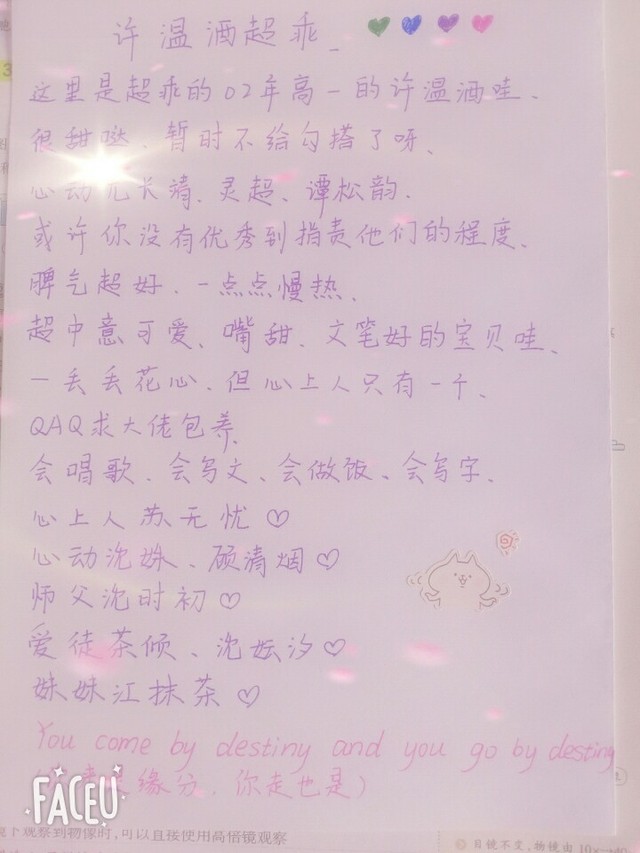 许温酒超乖、
这里是超乖的02年高一的许温酒哇、
很甜哒、暂时不给勾搭了呀、
心动尤长靖、灵超、谭松韵、
或许你没有优秀到指责他们的程度、
脾气超好、一点点慢热、
超中意可爱、嘴甜、文笔好的宝贝哇、
一丢丢花心、但心上人只有一个、
QAQ求大佬包养、
会唱歌、会写文、会做饭、会写字、
心上人苏无忧♡
心动沈姝、顾清烟♡
师父沈时初♡
爱徒茶倾、沈妘汐♡
妹妹江抹茶♡
You come by destiny and you go by destiny
缘分、你走也是）
FACEU
下观察到物像时,可以直接使用高倍镜观察
目镜不变,物镜由10×